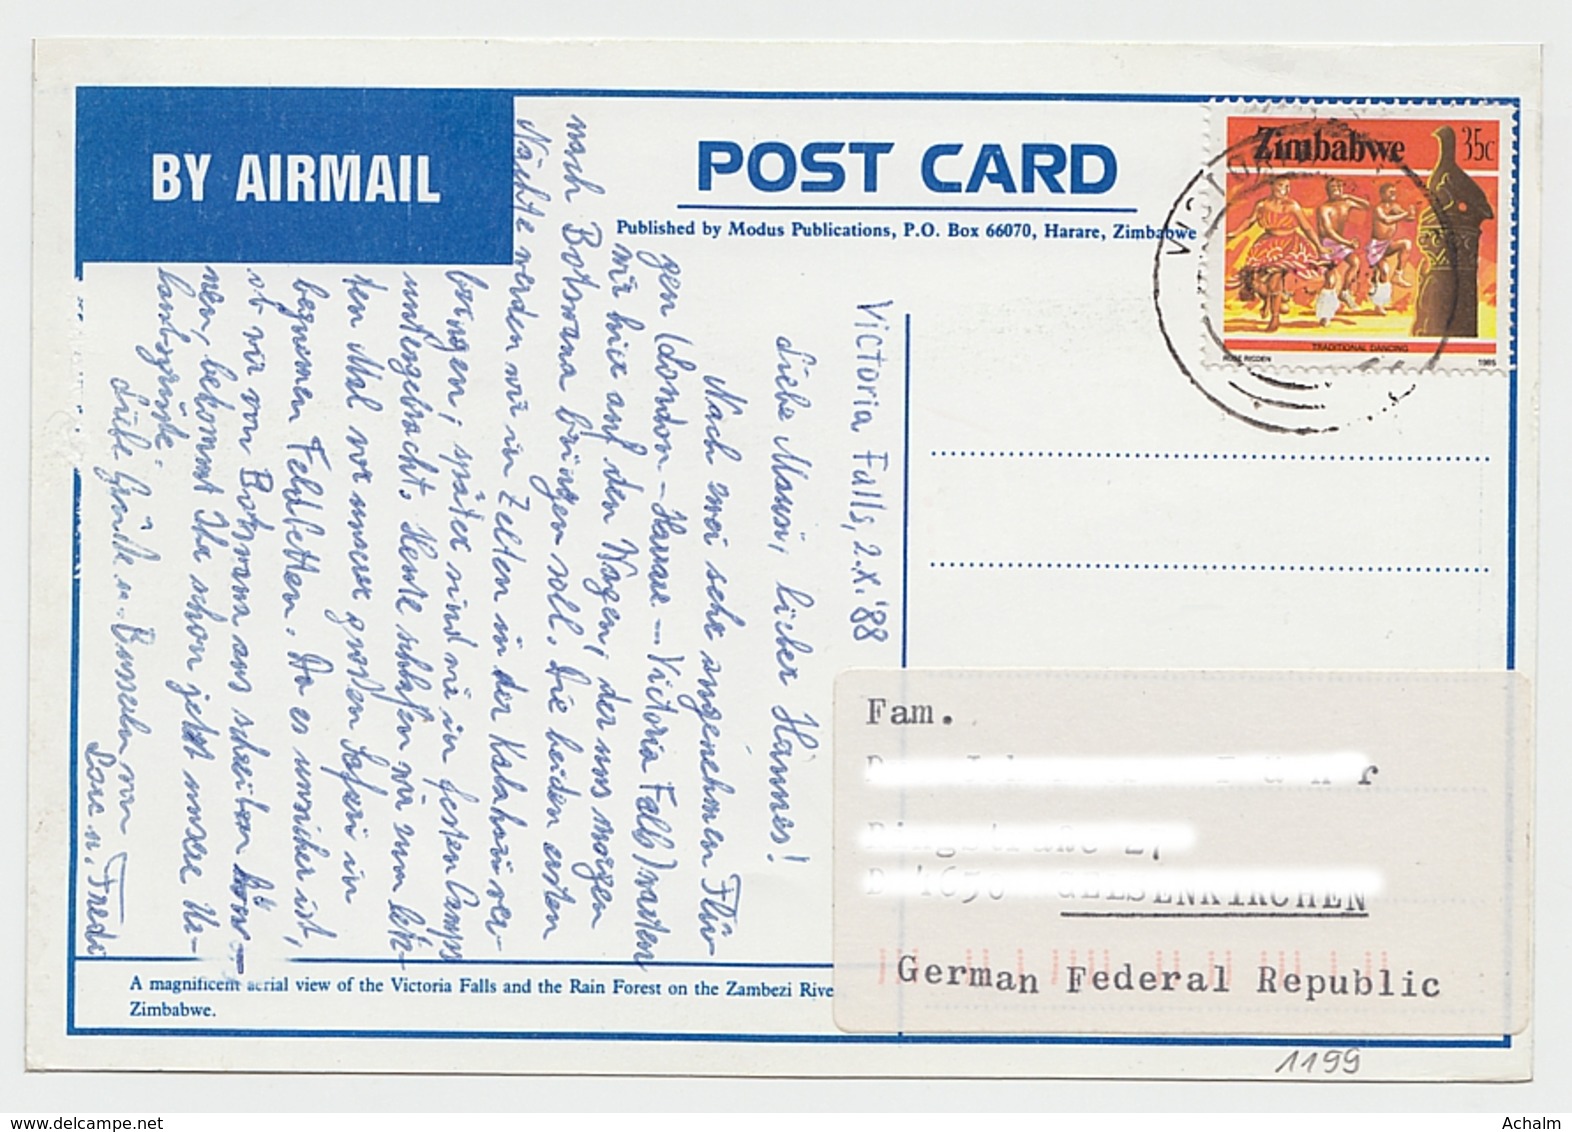 BY AIRMAIL
POST CARD
Published by Modus Publications, P.O. Box 66070, Harare, Zimbabwe
Zimbabwe 35c
TRADITIONAL DANCING
ROSE RIGDEN 1985
VICTO
Victoria Falls, 2.X.'88
Liebe Mausi, lieber Hannes!
Nach zwei sehr angenehmen Flü-
gen (London - Harare - Victoria Falls) warten
wir hier auf den Wagen, der uns morgen
nach Botswana bringen soll. Die beiden ersten
Nächte werden wir in Zelten in der Kalahari ver-
bringen, später sind wir in festen Camps
untergebracht. Heute schlafen wir zum letz-
ten Mal vor unserer großen Safari in
bequemen Feldbetten. Da es unsicher ist,
ob wir von Botswana aus schreiben kön-
nen, bekommt Ihr schon jetzt unsere Ur-
laubsgrüße.
Liebe Grüße u. Busseln von
Lore u. Fredi
Fam.
GELSENKIRCHEN
German Federal Republic
A magnificent aerial view of the Victoria Falls and the Rain Forest on the Zambezi Rive
Zimbabwe.
1199
Achalm